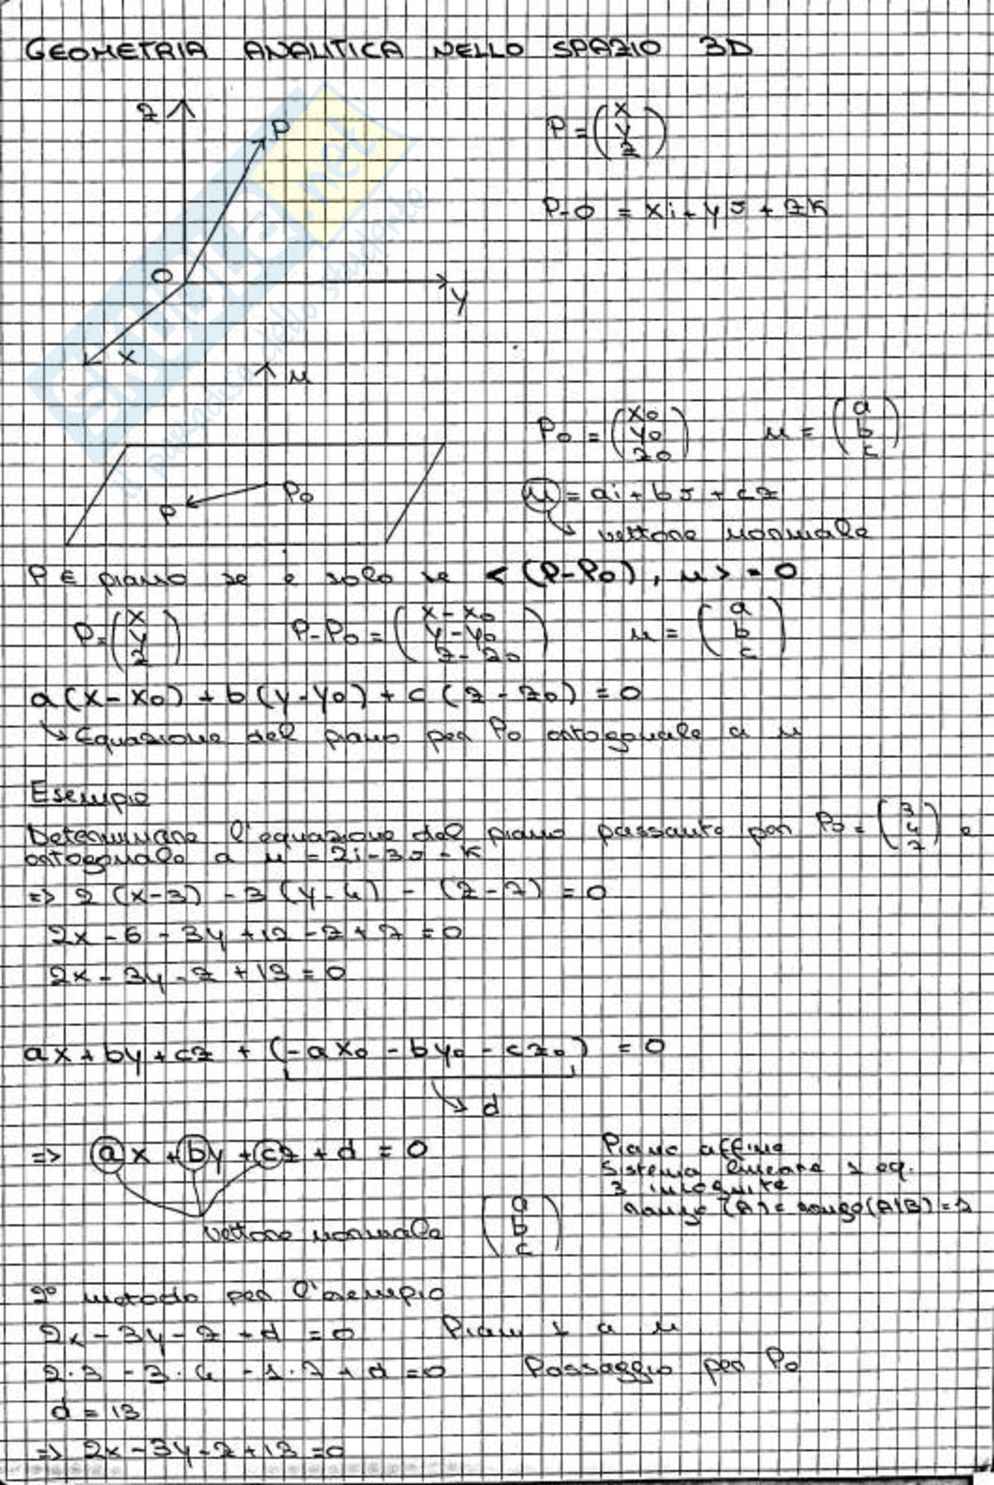 GEOMETRIA ANALITICA NELLO SPAZIO 3D
z
P
P = (x y z)
P-O = xi + yJ + zK
O
y
x
u
P0 = (x0 y0 z0) u = (a b c)
P0
P
u = ai + bJ + cz
vettore normale
P ∈ piano se e solo se < (P-P0), u > = 0
P = (x y z) P-P0 = (x-x0 y-y0 z-z0) u = (a b c)
a(x-x0) + b(y-y0) + c(z-z0) = 0
↳ Equazione del piano per P0 ortogonale a u
Esempio
Determinare l'equazione del piano passante per P0 = (3 4 7) e
ortogonale a u = 2i - 3J - K
=> 2(x-3) - 3(y-4) - (z-7) = 0
2x - 6 - 3y + 12 - z + 7 = 0
2x - 3y - z + 13 = 0
ax + by + cz + (-ax0 - by0 - cz0) = 0
d
=> ax + by + cz + d = 0
Piano affine
Sistema lineare 1 eq.
3 incognite
rango(A) = rango(A|B) = 1
vettore normale (a b c)
2° metodo per l'esempio
2x - 3y - z + d = 0 Piani ⊥ a u
2·3 - 3·4 - 1·7 + d = 0 Passaggio per P0
d = 13
=> 2x - 3y - z + 13 = 0